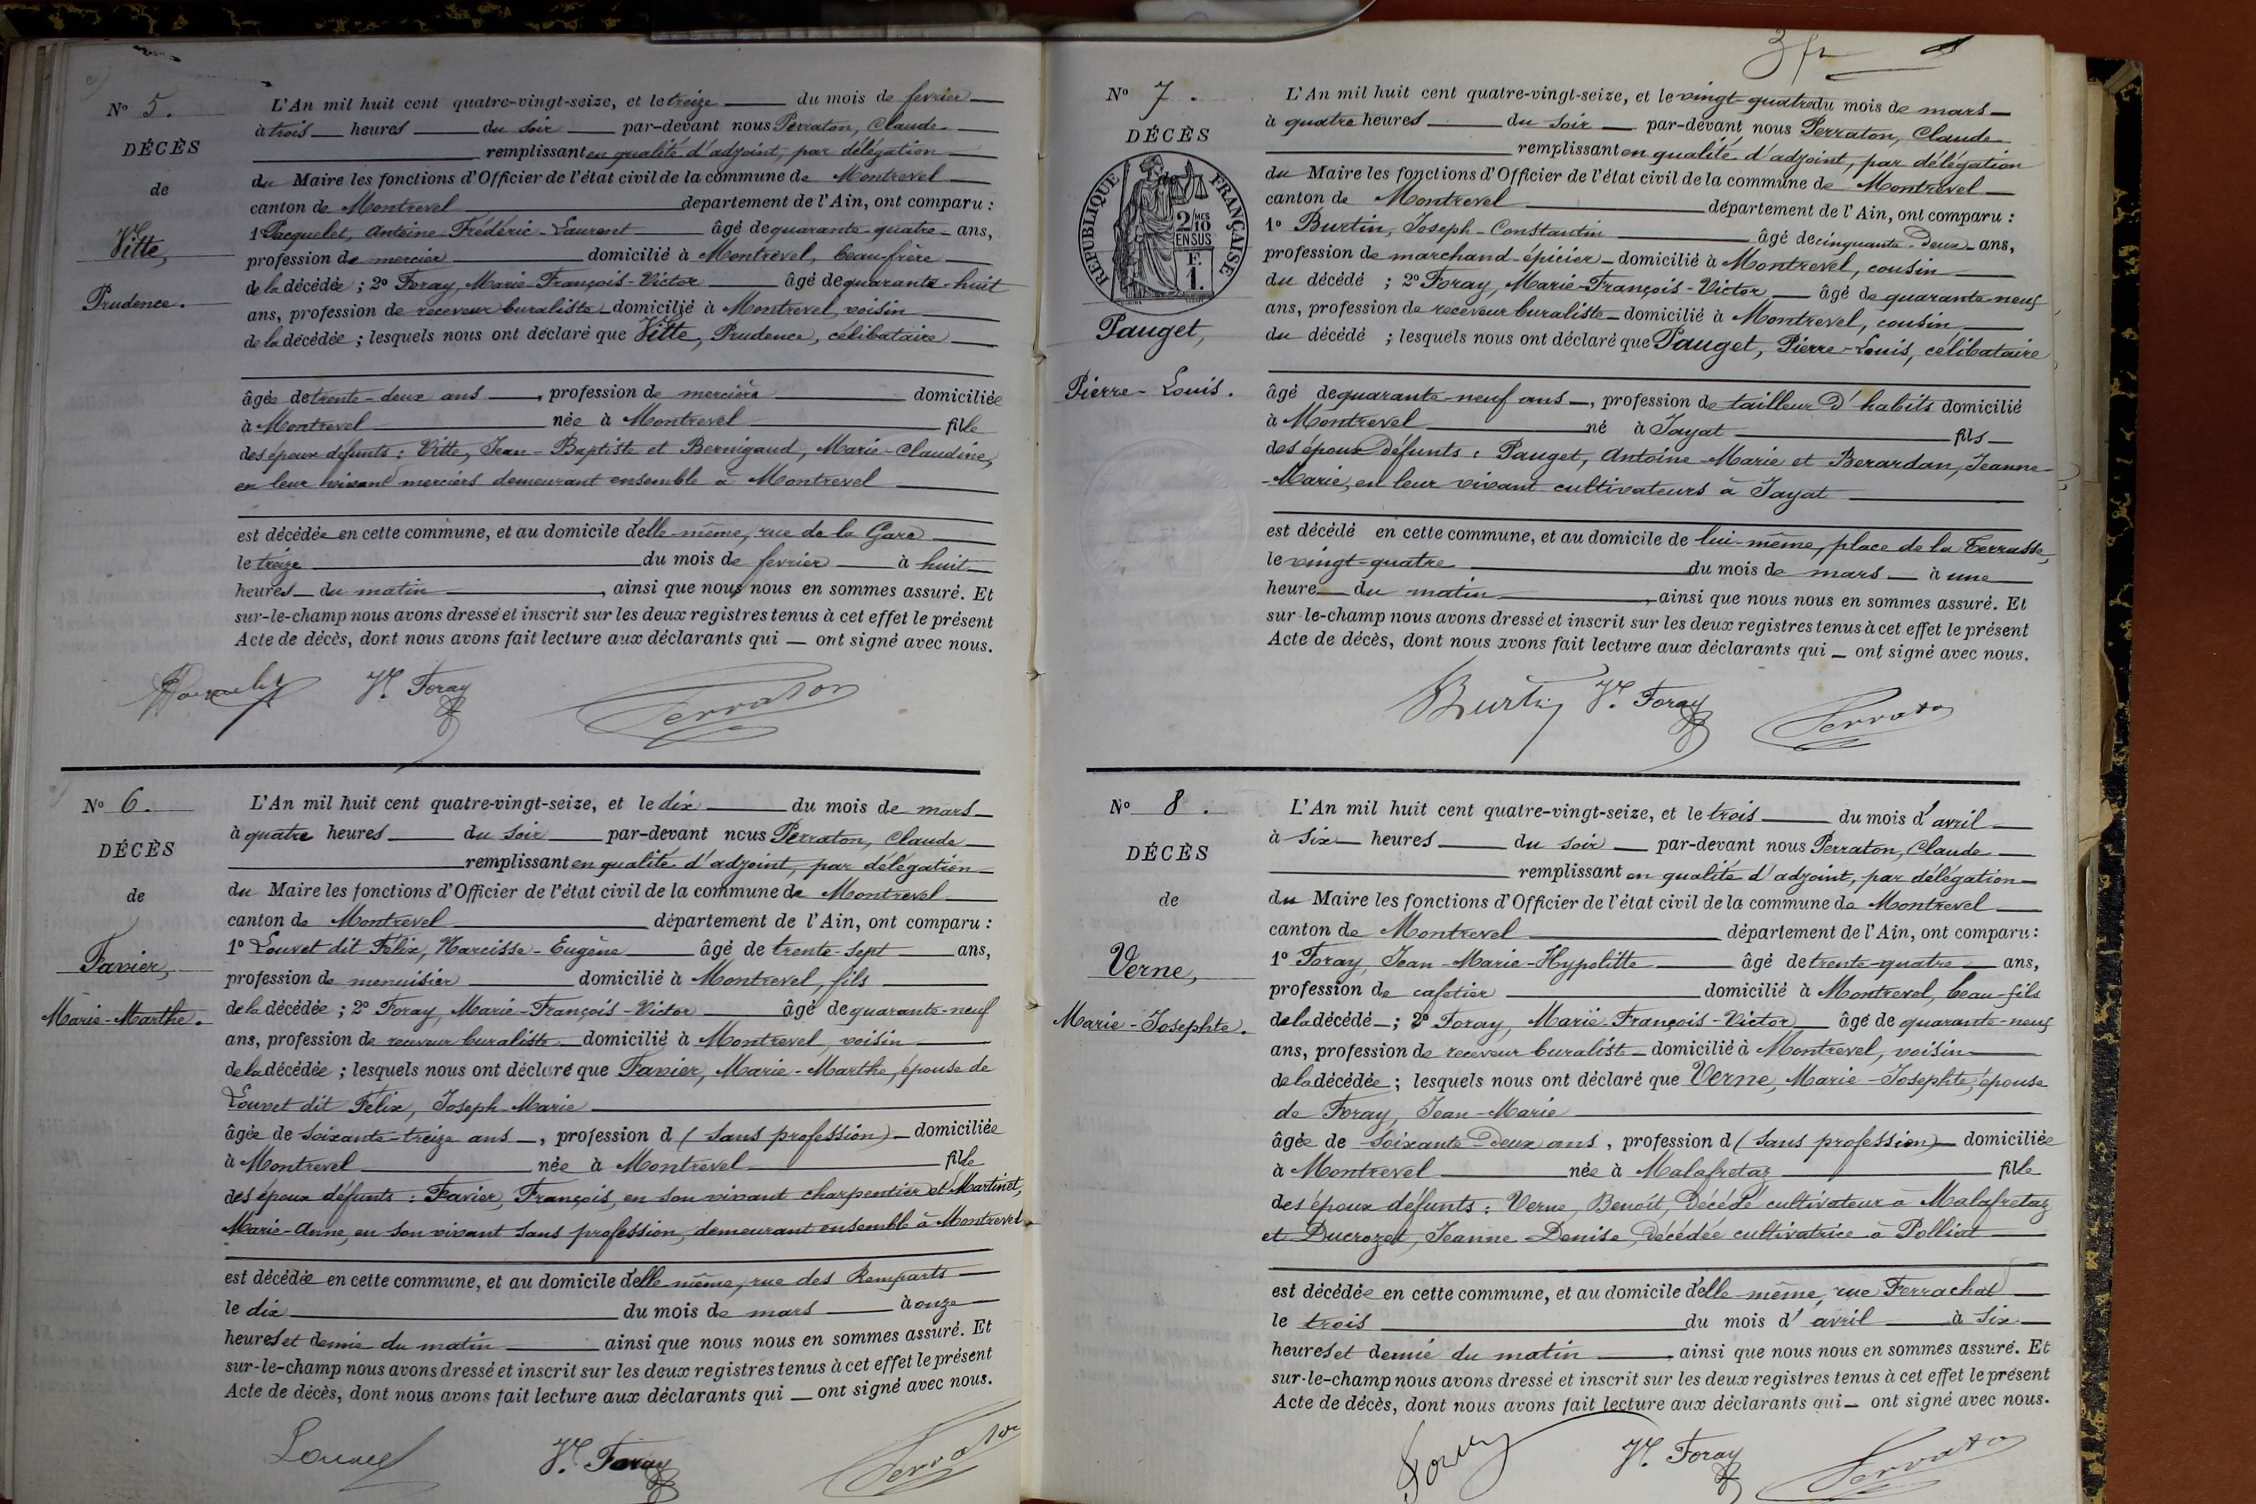 N° 5.
DÉCÈS
de
Vitte,
Prudence.
L'An mil huit cent quatre-vingt-seize, et le treize du mois de fevrier
à trois heures du soir par-devant nous Perraton, Claude
remplissant en qualité d'adjoint, par délégation
du Maire les fonctions d'Officier de l'état civil de la commune de Montrevel
canton de Montrevel département de l'Ain, ont comparu :
1° Jacquelet, Antoine-Frédéric-Laurent âgé de quarante-quatre ans,
profession de mercier domicilié à Montrevel, beau-frère
de la décédée ; 2° Foray, Marie-François-Victor âgé de quarante-huit
ans, profession de receveur buraliste domicilié à Montrevel, voisin
de la décédée ; lesquels nous ont déclaré que Vitte, Prudence, célibataire
âgée de trente-deux ans, profession de mercière domiciliée
à Montrevel née à Montrevel fille
des époux défunts : Vitte, Jean-Baptiste et Bernigaud, Marie-Claudine,
en leur vivant merciers demeurant ensemble à Montrevel
est décédée en cette commune, et au domicile d'elle-même, rue de la Gare
le treize du mois de fevrier à huit
heures du matin, ainsi que nous nous en sommes assuré. Et
sur-le-champ nous avons dressé et inscrit sur les deux registres tenus à cet effet le présent
Acte de décès, dont nous avons fait lecture aux déclarants qui ont signé avec nous.
Vr. Foray
Perraton
N° 6.
DÉCÈS
de
Favier,
Marie-Marthe.
L'An mil huit cent quatre-vingt-seize, et le dix du mois de mars
à quatre heures du soir par-devant nous Perraton, Claude
remplissant en qualité d'adjoint, par délégation
du Maire les fonctions d'Officier de l'état civil de la commune de Montrevel
canton de Montrevel département de l'Ain, ont comparu :
1° Louvet dit Félix, Narcisse-Eugène âgé de trente-sept ans,
profession de menuisier domicilié à Montrevel, fils
de la décédée ; 2° Foray, Marie-François-Victor âgé de quarante-neuf
ans, profession de receveur buraliste domicilié à Montrevel, voisin
de la décédée ; lesquels nous ont déclaré que Favier, Marie-Marthe, épouse de
Louvet dit Félix, Joseph-Marie
âgée de soixante-treize ans, profession d (sans profession) domiciliée
à Montrevel née à Montrevel fille
des époux défunts : Favier, François, en son vivant charpentier et Martinet,
Marie-Anne, en son vivant sans profession, demeurant ensemble à Montrevel
est décédée en cette commune, et au domicile d'elle-même, rue des Remparts
le dix du mois de mars à onze
heures et demie du matin ainsi que nous nous en sommes assuré. Et
sur-le-champ nous avons dressé et inscrit sur les deux registres tenus à cet effet le présent
Acte de décès, dont nous avons fait lecture aux déclarants qui ont signé avec nous.
Louvet
Vr. Foray
Perraton
3 fr
N° 7.
DÉCÈS
RÉPUBLIQUE FRANÇAISE
2/10 MES
EN SUS
F.
1.
Pauget,
Pierre-Louis.
L'An mil huit cent quatre-vingt-seize, et le vingt-quatre du mois de mars
à quatre heures du soir par-devant nous Perraton, Claude
remplissant en qualité d'adjoint, par délégation
du Maire les fonctions d'Officier de l'état civil de la commune de Montrevel
canton de Montrevel département de l'Ain, ont comparu :
1° Burtin, Joseph-Constantin âgé de cinquante-deux ans,
profession de marchand-épicier domicilié à Montrevel, cousin
du décédé ; 2° Foray, Marie-François-Victor âgé de quarante-neuf
ans, profession de receveur buraliste domicilié à Montrevel, cousin
du décédé ; lesquels nous ont déclaré que Pauget, Pierre-Louis, célibataire
âgé de quarante-neuf ans, profession de tailleur d'habits domicilié
à Montrevel né à Jayat fils
des époux défunts : Pauget, Antoine-Marie et Berardan, Jeanne-
-Marie, en leur vivant cultivateurs à Jayat
est décédé en cette commune, et au domicile de lui-même, place de la Terrasse,
le vingt-quatre du mois de mars à une
heure du matin, ainsi que nous nous en sommes assuré. Et
sur-le-champ nous avons dressé et inscrit sur les deux registres tenus à cet effet le présent
Acte de décès, dont nous avons fait lecture aux déclarants qui ont signé avec nous.
Burtin
Vr. Foray
Perraton
N° 8.
DÉCÈS
de
Verne,
Marie-Josephte.
L'An mil huit cent quatre-vingt-seize, et le trois du mois d'avril
à six heures du soir par-devant nous Perraton, Claude
remplissant en qualité d'adjoint, par délégation
du Maire les fonctions d'Officier de l'état civil de la commune de Montrevel
canton de Montrevel département de l'Ain, ont comparu :
1° Foray, Jean-Marie-Hypolitte âgé de trente-quatre ans,
profession de cafetier domicilié à Montrevel, beau-fils
de la décédé ; 2° Foray, Marie-François-Victor âgé de quarante-neuf
ans, profession de receveur buraliste domicilié à Montrevel, voisin
de la décédée ; lesquels nous ont déclaré que Verne, Marie-Josephte, épouse
de Foray, Jean-Marie
âgée de soixante-deux ans, profession d (sans profession) domiciliée
à Montrevel née à Malafretaz fille
des époux défunts : Verne, Benoît, décédé cultivateur à Malafretaz
et Ducrozet, Jeanne Denise, décédée cultivatrice à Polliat
est décédée en cette commune, et au domicile d'elle-même, rue Ferrachat
le trois du mois d'avril à six
heures et demie du matin, ainsi que nous nous en sommes assuré. Et
sur-le-champ nous avons dressé et inscrit sur les deux registres tenus à cet effet le présent
Acte de décès, dont nous avons fait lecture aux déclarants qui ont signé avec nous.
Foray
Vr. Foray
Perraton